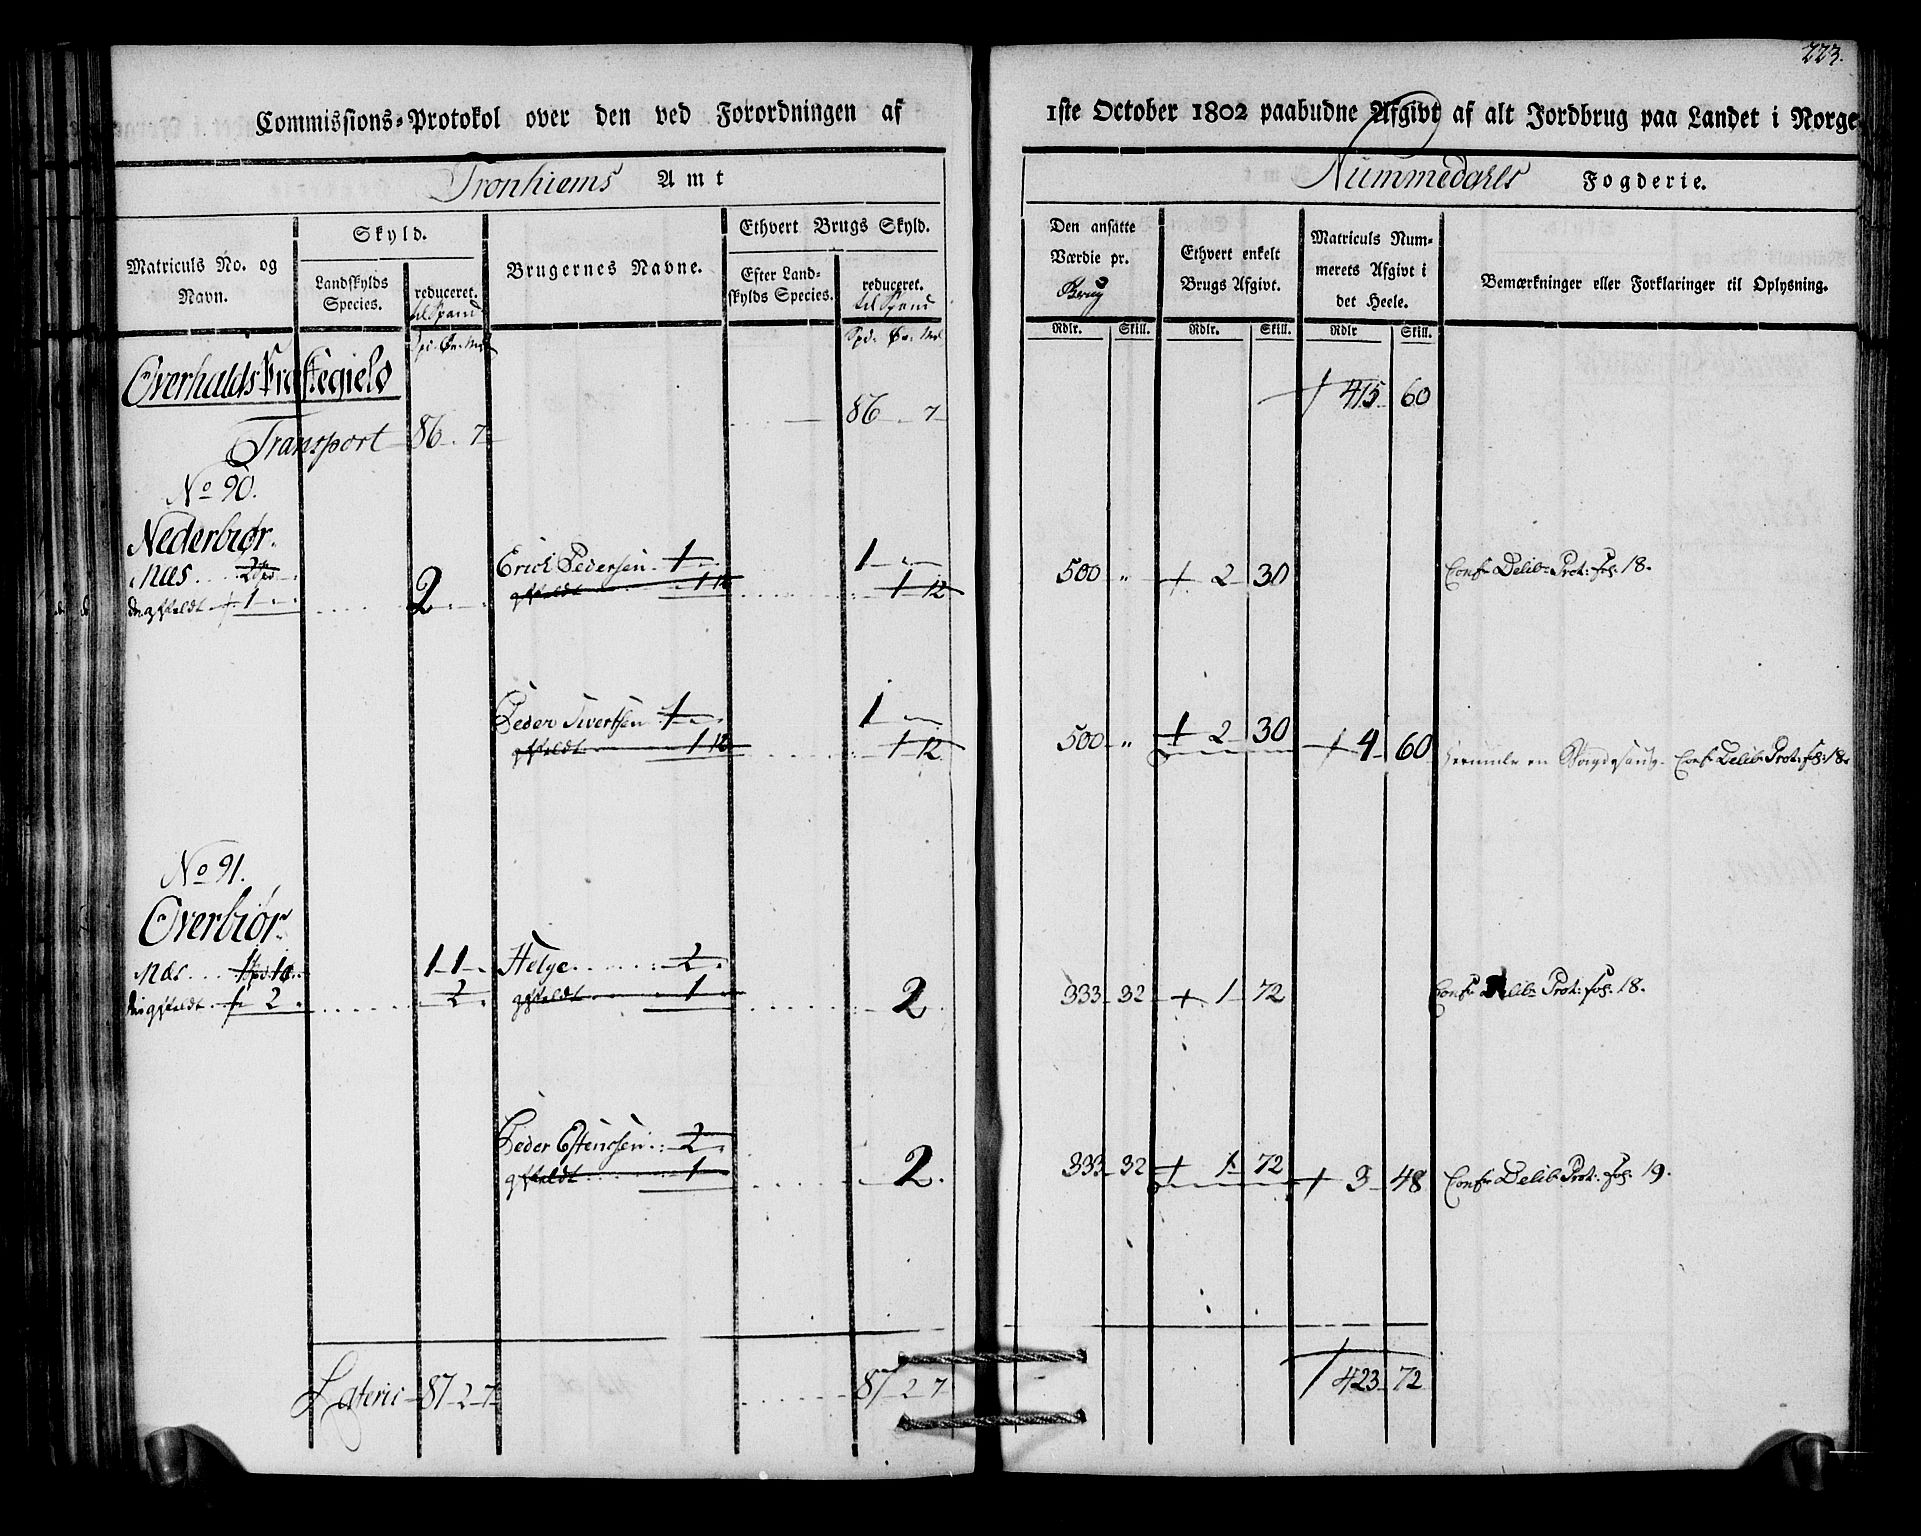 223.
Commissions-Protokol over den ved Forordningen af 1ste October 1802 paabudne Afgivt af alt Jordbrug paa Landet i Norge
Tronhiems Amt
Nummedahls Fogderie.
Matriculs No. og Navn.
Skyld.
Landskylds Species.
reduceret.
til Spand
Brugernes Navne.
Ethvert Brugs Skyld.
Efter Landskylds Species.
reduceret.
til Spand
Den ansatte Værdie pr. Brug
Ethvert enkelt Brugs Afgivt.
Matriculs Nummerets Afgivt i det Heele.
Bemærkninger eller Forklaringer til Oplysning.
Rdlr. Skill. Rdlr. Skill. Rdlr Skill.
Spd. Ør. Ml
Spd. Ør. Ml
Overhalds Præstegield
Transport 86. 7 86. 7 415 60
No 90.
Nederbiør
Næs 2
1
2
Erich Pedersen 1 1 500 " 2 30 Conf Delib: Prot: fol: 18.
1 12 1 12
Peder Sivertsen 1 1 500 " 2 30 4 60 Conf Delib: Prot: fol: 18.
1 12 1 12
No 91.
Overbiør
Næs 1 1 1 Helge 2
2 2 1 2 333 32 1 72 Conf Delib: Prot: fol: 18.
Peder Estensen 2
1 2. 333 32 1 72 3 48 Conf Delib: Prot: fol: 19.
Lateris 87 2 7 87 2 7 423 72